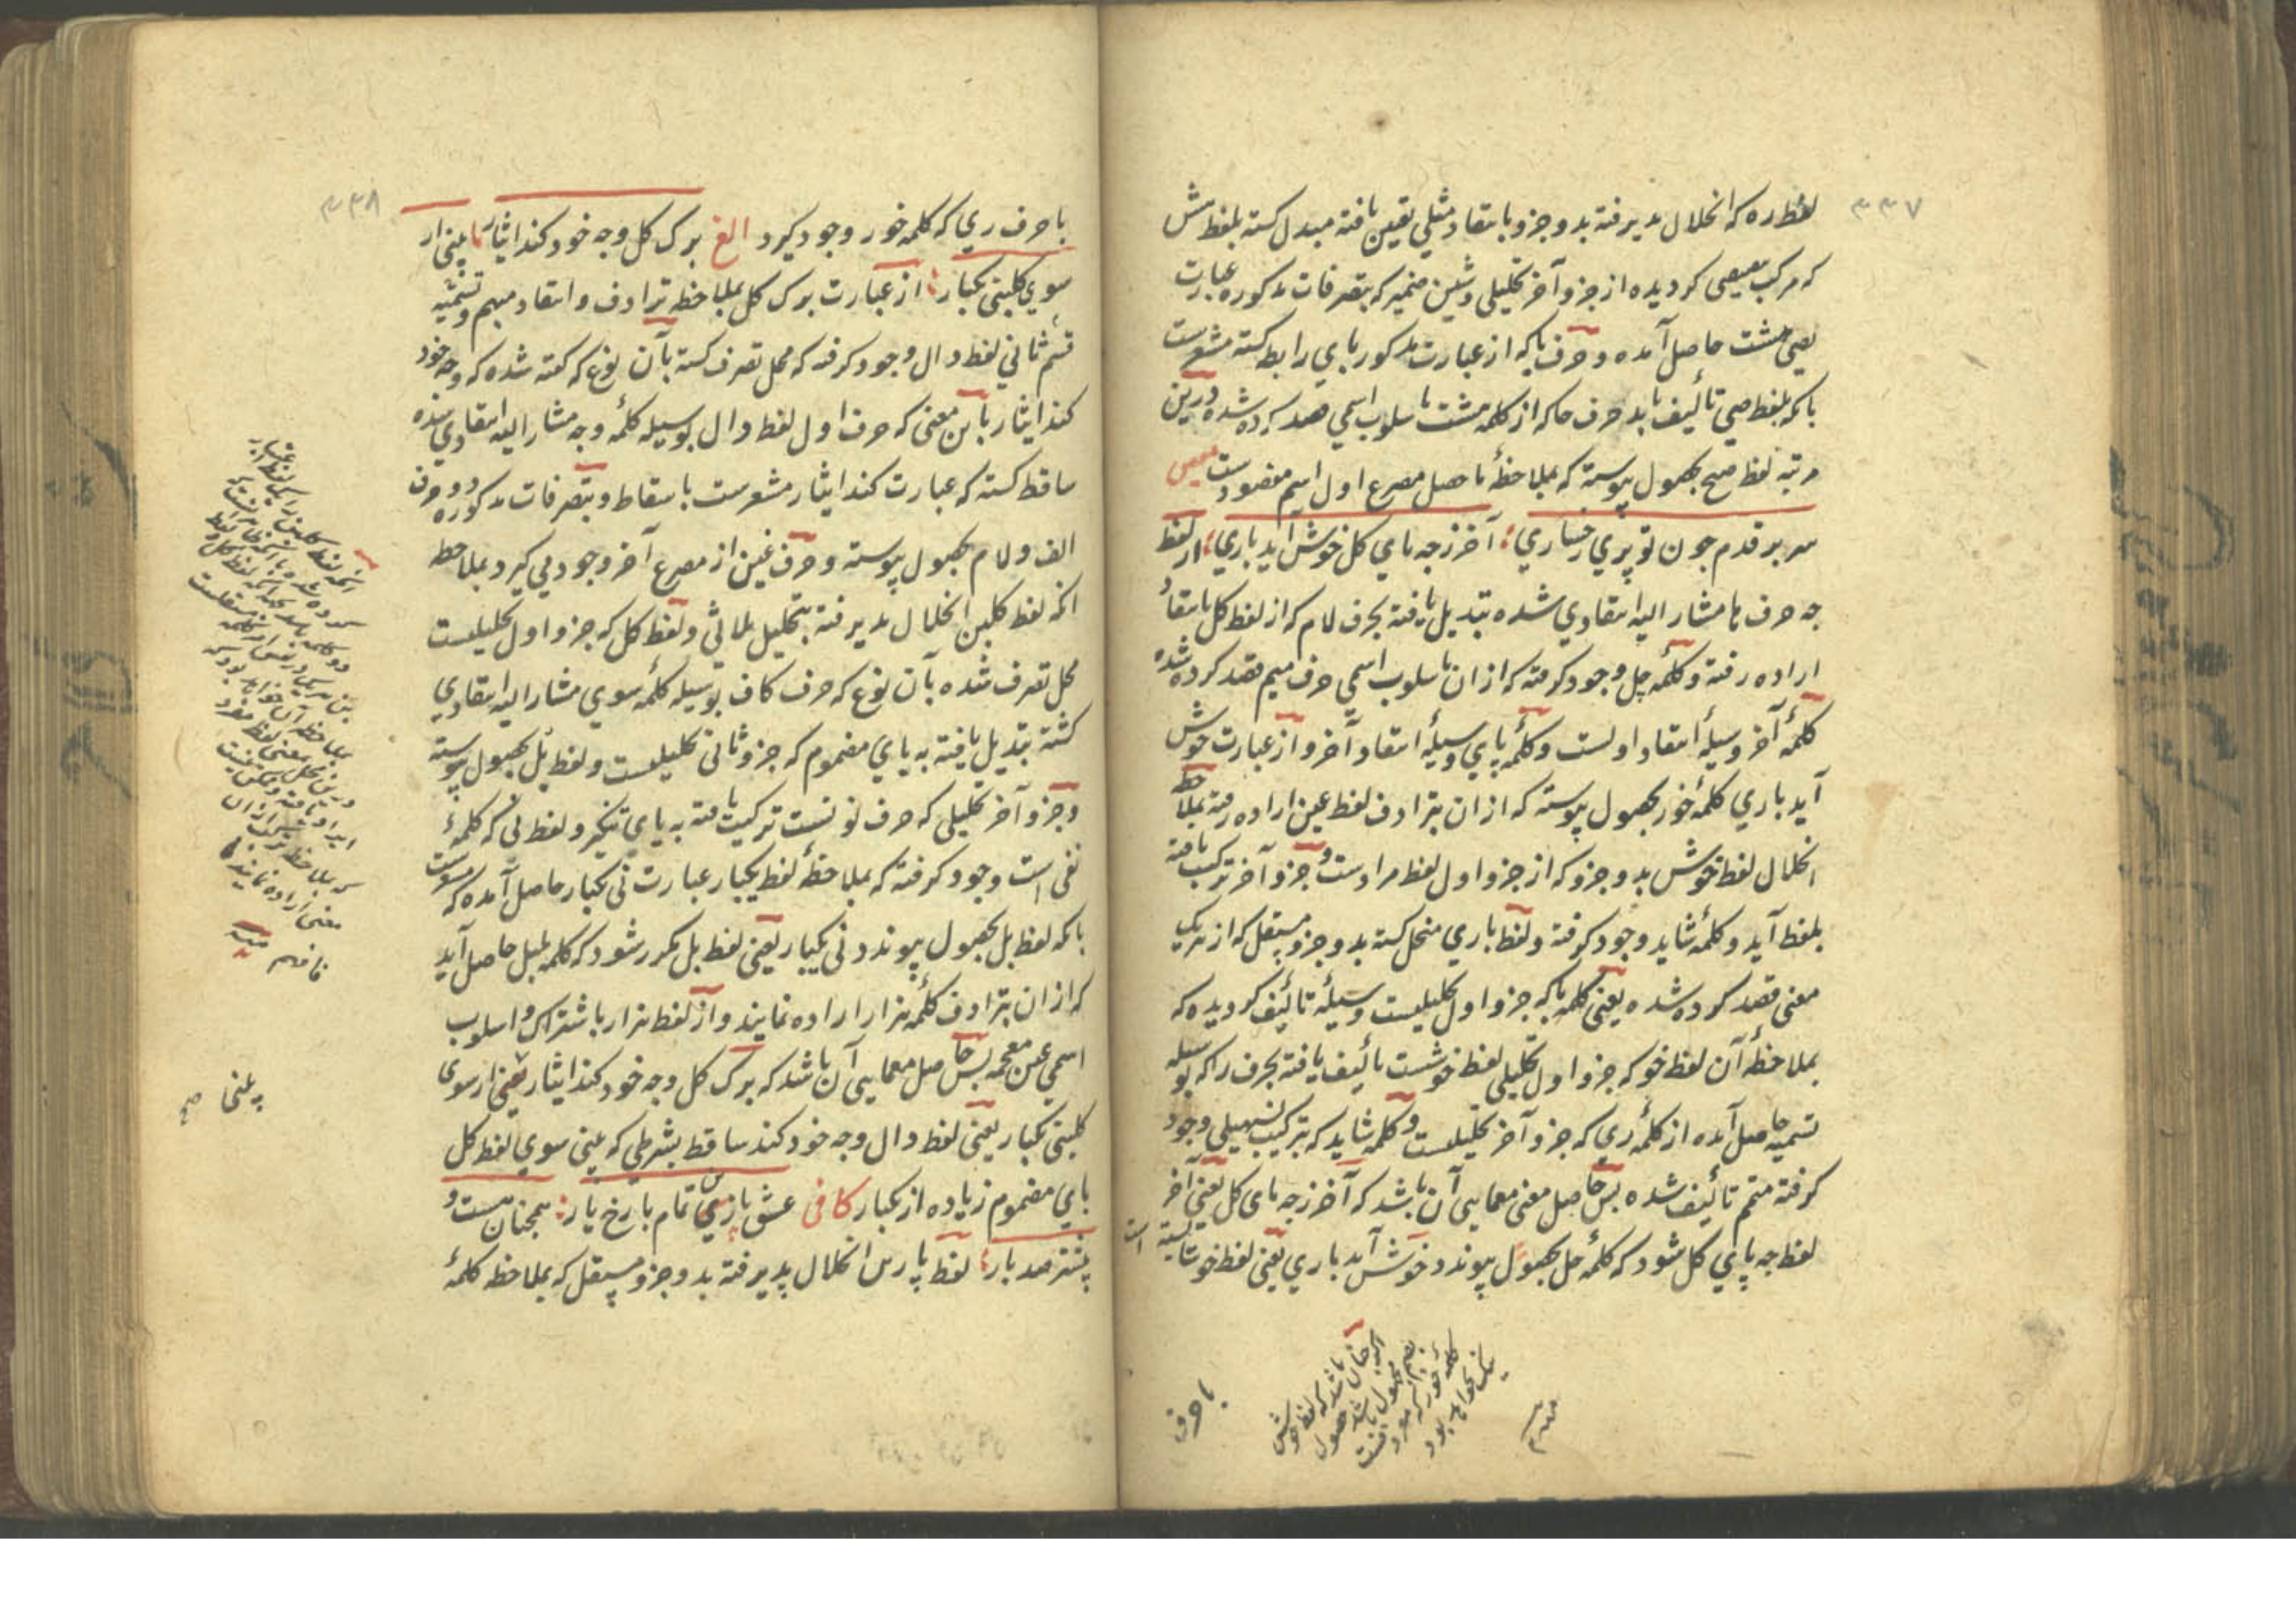 ۳۳۷
لفظ ره که انحلال پذیرفته بدو جزو بانتقاد مثلی تعین یافته مبدل کشته بلفظ مش
که مرکب معیمی کردیده از جزو آخر تحلیلی و شین ضمیر که بتصرفات مذکوره عبارت
یعنی مشت حاصل آمده و حرف با که از عبارت مذکور بای رابط کشته مشعرست
بانکه بلفظ صی تألیف یابد حرف حا که از کلمه مشت باسلوب اسمی قصد کرده شده درین
مرتبه لفظ صبح بحصول پیوسته که بملاحظهٔ ما حصل مصرع اول اسم مقصودست
سر بر قدم چون تو پری رخساری؛ آخر ز چه بای کل خوش آید باری؛ از لفظ
چه حرف ها مشار الیه انتقادی شده تبدیل یافته بحرف لام که از لفظ کل بانتقاد
اراده رفته و کلمه چل وجود کرفته که ازان باسلوب اسمی حرف میم قصد کرده شده
کلمهٔ آخر وسیلهٔ انتقاد اولست و کلمهٔ پای وسیلهٔ انتقاد آخر و از عبارت خوش
آید باری کلمهٔ خور بحصول پیوسته که ازان بترادف لفظ عین اراده رفته بملاحظه
انحلال لفظ خوش بدو جزو که از جزو اول لفظ مرادست و جزو آخر ترکیب یافته
بلفظ آید و کلمهٔ شاید وجود کرفته و لفظ باری منحل کشته بدو جزو مستقل که از هریک
معنی قصد کرده شده یعنی کلمه با که جزو اول تحلیلیست وسیلهٔ تألیف کردیده که
بملاحظهٔ آن لفظ خو که جزو اول تحلیلی لفظ خوشست تألیف یافته بحرف را که بوسیله
تسمیه حاصل آمده از کلمهٔ ری که جزو آخر تحلیلیست و کلمه شاید که بترکیب تسهیلی وجود
کرفته متمم تألیف شده پس حاصل معنی معمایی آن باشد که آخر ز چه بای کل یعنی آخر
لفظ چه پای کل شود که کلمهٔ چل بحصول پیوندد خوش آید باری یعنی لفظ خو شایسته است
باحرف
۳۳۸
باحرف ری که کلمه خور وجود کیرد الغ برک کل وجه خود کند ایثار
سوی کلبنی یکبار؛ از عبارت برک کل بملاحظه ترادف و انتقاد مبهم و تسمیه
قسم ثانی لفظ دال وجود کرفته که محل تصرف کشته بآن نوع که کفته شده که وجه خود
کند ایثار باین معنی که حرف اول لفظ دال بوسیله کلمهٔ وجه مشار الیه انتقادی شده
ساقط کشته که عبارت کند ایثار مشعرست باسقاط و بتصرفات مذکوره دو حرف
الف و لام بحصول پیوسته و حرف غین از مصرع آخر وجود می کیرد بملاحظه
انکه لفظ کلبن انحلال پذیرفته بتحلیل ثلاثی و لفظ کل که جزو اول تحلیلیست
محل تصرف شده بآن نوع که حرف کاف بوسیله کلمهٔ سوی مشار الیه انتقادی
کشته تبدیل یافته به بای مضموم که جزو ثانی تحلیلیست و لفظ بل بحصول پیوسته
و جزو آخر تحلیلی که حرف نونست ترکیب یافته به یای تنکیر و لفظ نی که کلمهٔ
نفی است وجود کرفته که بملاحظهٔ لفظ یکبار عبارت نی یکبار حاصل آمده که مشعرست
بانکه لفظ بل بحصول پیوندد نی یکبار یعنی لفظ بل مکرر شود که کلمه بلبل حاصل آید
که ازان بترادف کلمهٔ هزار اراده نمایند و از لفظ هزار باشتراک و اسلوب
اسمی غین معجمه پس حاصل معمایی آن باشد که برک کل وجه خود کند ایثار یعنی از سوی
کلبنی یکبار یعنی لفظ دال وجه خود کند ساقط بشرطی که بینی سوی لفظ کل
بای مضموم زیاده از یکبار کافی عشق بازی تمام با رخ یار؛ همچنان هست و
بیشتر صد بار؛ لفظ پارس انحلال پذیرفته بدو جزو مستقل که بملاحظه کلمهٔ